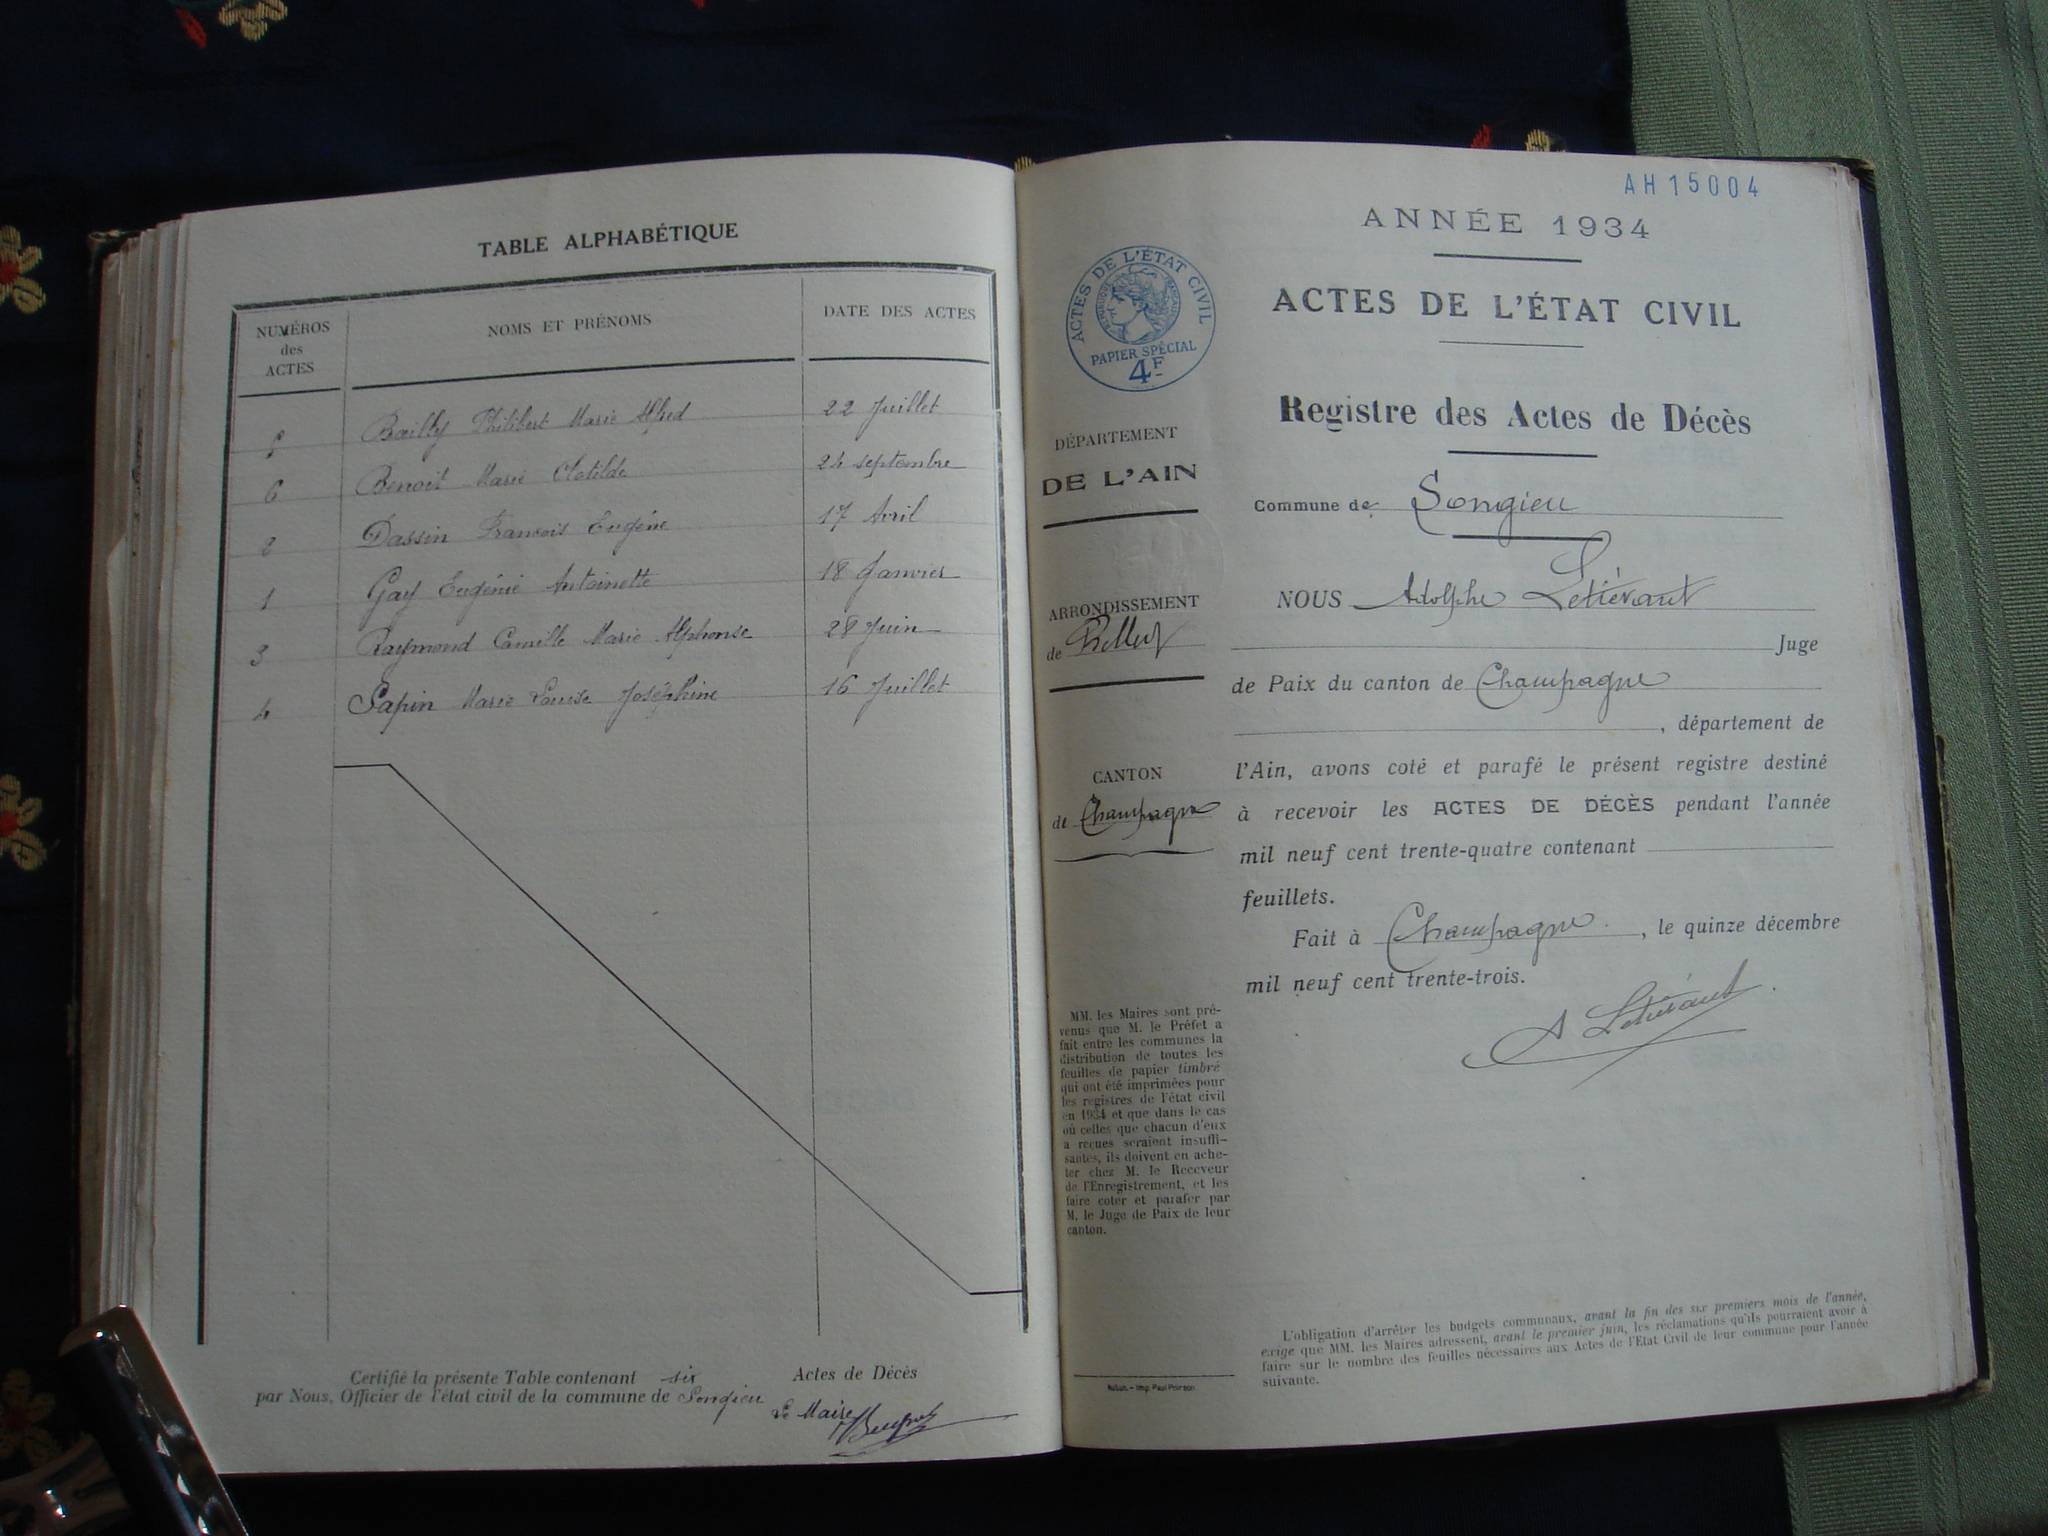 TABLE ALPHABÉTIQUE
NUMÉROS des ACTES
NOMS ET PRÉNOMS
DATE DES ACTES
5 Bailly Philibert Marie Alfred 22 Juillet
6 Benoit Marie Clotilde 24 septembre
2 Dassin François Eugène 17 Avril
1 Gay Eugénie Antoinette 18 Janvier
3 Raymond Camille Marie Alphonse 28 Juin
4 Sapin Marie Louise Joséphine 16 Juillet
Certifié la présente Table contenant six Actes de Décès
par Nous, Officier de l'état civil de la commune de Songieu
Le Maire
AH15004
ANNÉE 1934
ACTES DE L'ÉTAT CIVIL
RÉPUBLIQUE FRANÇAISE
PAPIER SPÉCIAL
4F
ACTES DE L'ÉTAT CIVIL
Registre des Actes de Décès
DÉPARTEMENT
DE L'AIN
ARRONDISSEMENT
de Belley
CANTON
de Champagne
Commune de Songieu
NOUS Adolphe Letiévant
Juge
de Paix du canton de Champagne
, département de
l'Ain, avons coté et parafé le présent registre destiné
à recevoir les ACTES DE DÉCÈS pendant l'année
mil neuf cent trente-quatre contenant
feuillets.
Fait à Champagne , le quinze décembre
mil neuf cent trente-trois.
A Letiévant
MM. les Maires sont pré-
venus que M. le Préfet a
fait entre les communes la
distribution de toutes les
feuilles de papier timbré
qui ont été imprimées pour
les registres de l'état civil
en 1934 et que dans le cas
où celles que chacun d'eux
a reçues seraient insuffi-
santes, ils doivent en ache-
ter chez M. le Receveur
de l'Enregistrement, et les
faire coter et parafer par
M. le Juge de Paix de leur
canton.
L'obligation d'arrêter les budgets communaux, avant la fin des six premiers mois de l'année,
exige que MM. les Maires adressent, avant le premier juin, les réclamations qu'ils pourraient avoir à
faire sur le nombre des feuilles nécessaires aux Actes de l'Etat Civil de leur commune pour l'année
suivante.